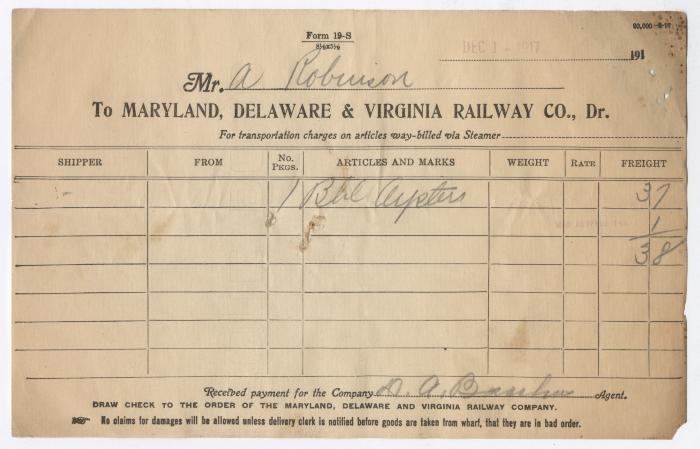 Form 19-S
8½x5½
20,000-8-17
DEC 1 1917
191
Mr. A Robinson
To MARYLAND, DELAWARE & VIRGINIA RAILWAY CO., Dr.
For transportation charges on articles way-billed via Steamer
SHIPPER FROM No. Pkgs. ARTICLES AND MARKS WEIGHT RATE FREIGHT
1 Bbl Oysters 37
1
38
Received payment for the Company D. A. Agent.
DRAW CHECK TO THE ORDER OF THE MARYLAND, DELAWARE AND VIRGINIA RAILWAY COMPANY.
No claims for damages will be allowed unless delivery clerk is notified before goods are taken from wharf, that they are in bad order.